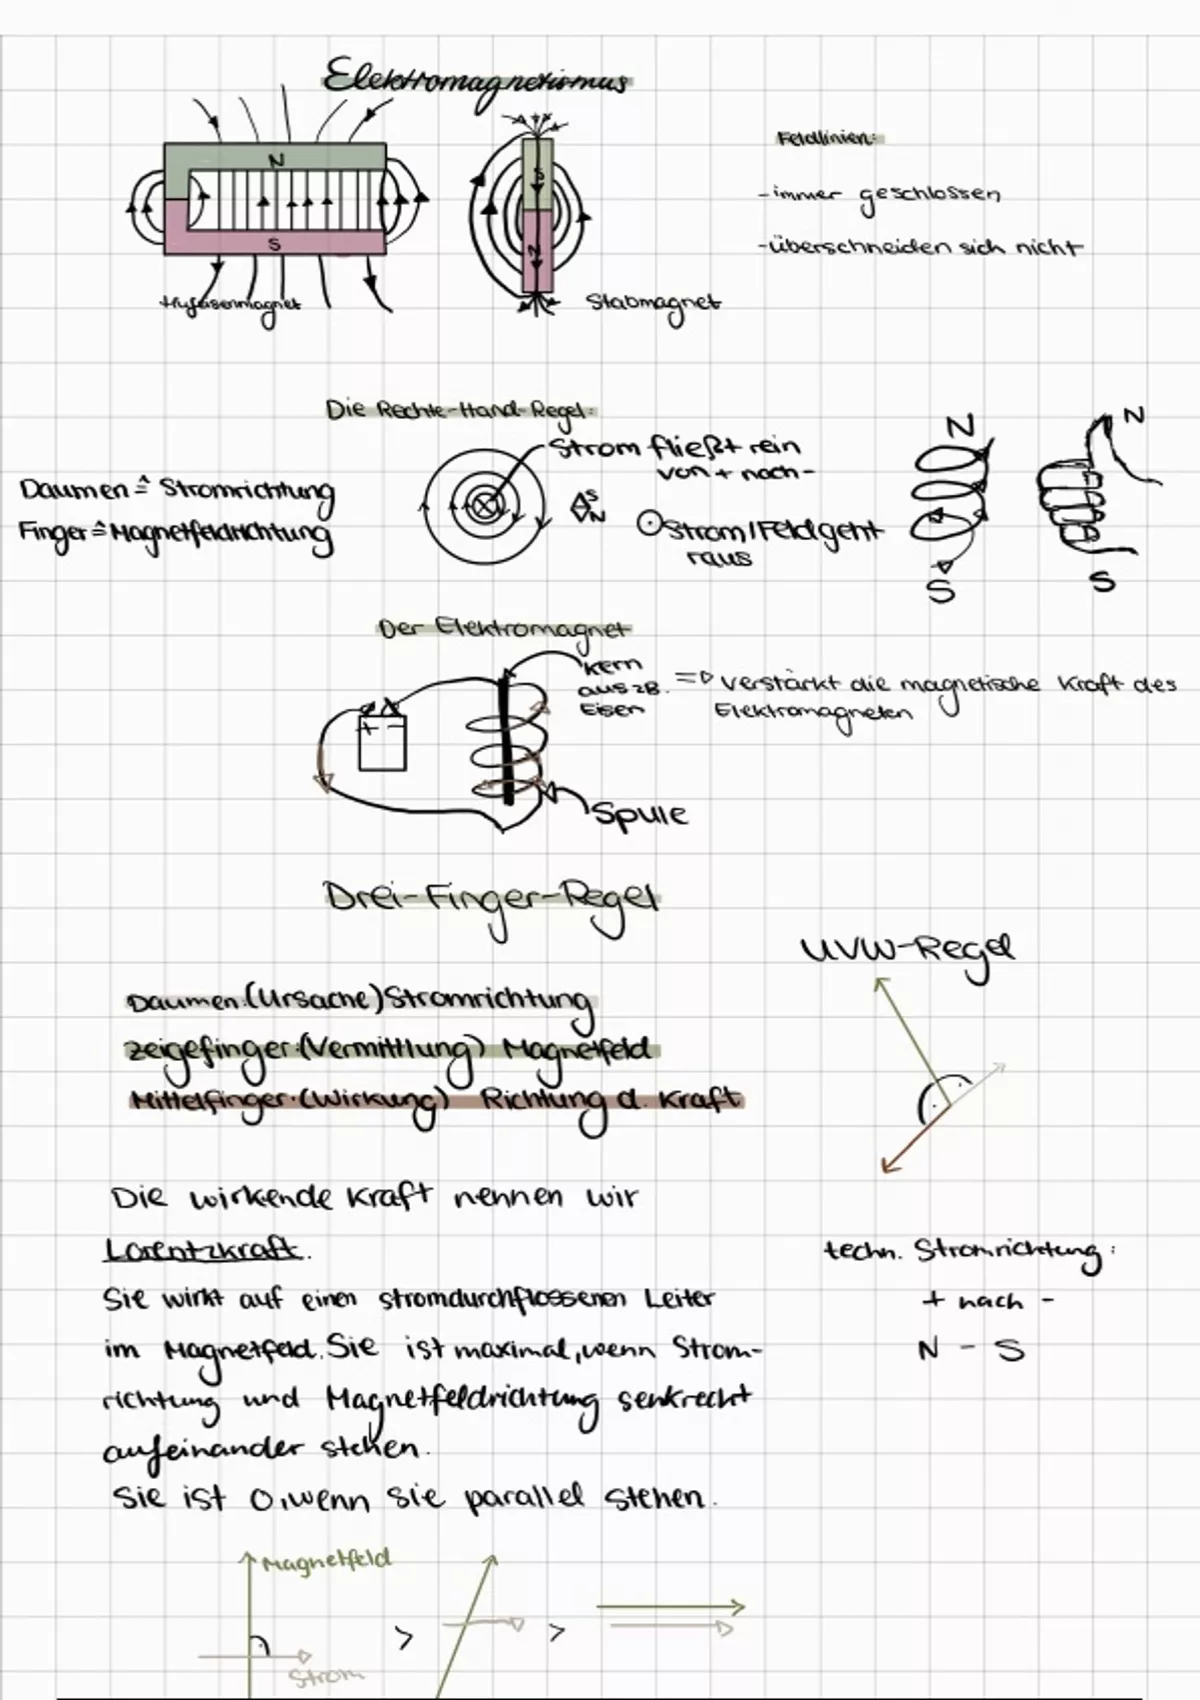 Elektromagnetismus
N
S
Hufeisenmagnet
S
N
Stabmagnet
Feldlinien:
-immer geschlossen
-überschneiden sich nicht
Die Rechte-Hand-Regel:
Daumen ≙ Stromrichtung
Finger ≙ Magnetfeldrichtung
Strom fließt rein
von + nach -
S
N
⊙ Strom/Feld geht
raus
N
S
N
S
Der Elektromagnet
+ -
Kern
aus zB.
Eisen
=> verstärkt die magnetische Kraft des
Elektromagneten
Spule
Drei-Finger-Regel
UVW-Regel
Daumen:(Ursache) Stromrichtung
Zeigefinger:(Vermittlung) Magnetfeld
Mittelfinger:(Wirkung) Richtung d. Kraft
Die wirkende Kraft nennen wir
Lorentzkraft.
Sie wirkt auf einen stromdurchflossenen Leiter
im Magnetfeld. Sie ist maximal, wenn Strom-
richtung und Magnetfeldrichtung senkrecht
aufeinander stehen.
Sie ist 0, wenn sie parallel stehen.
techn. Stromrichtung:
+ nach -
N - S
Magnetfeld
> >
Strom